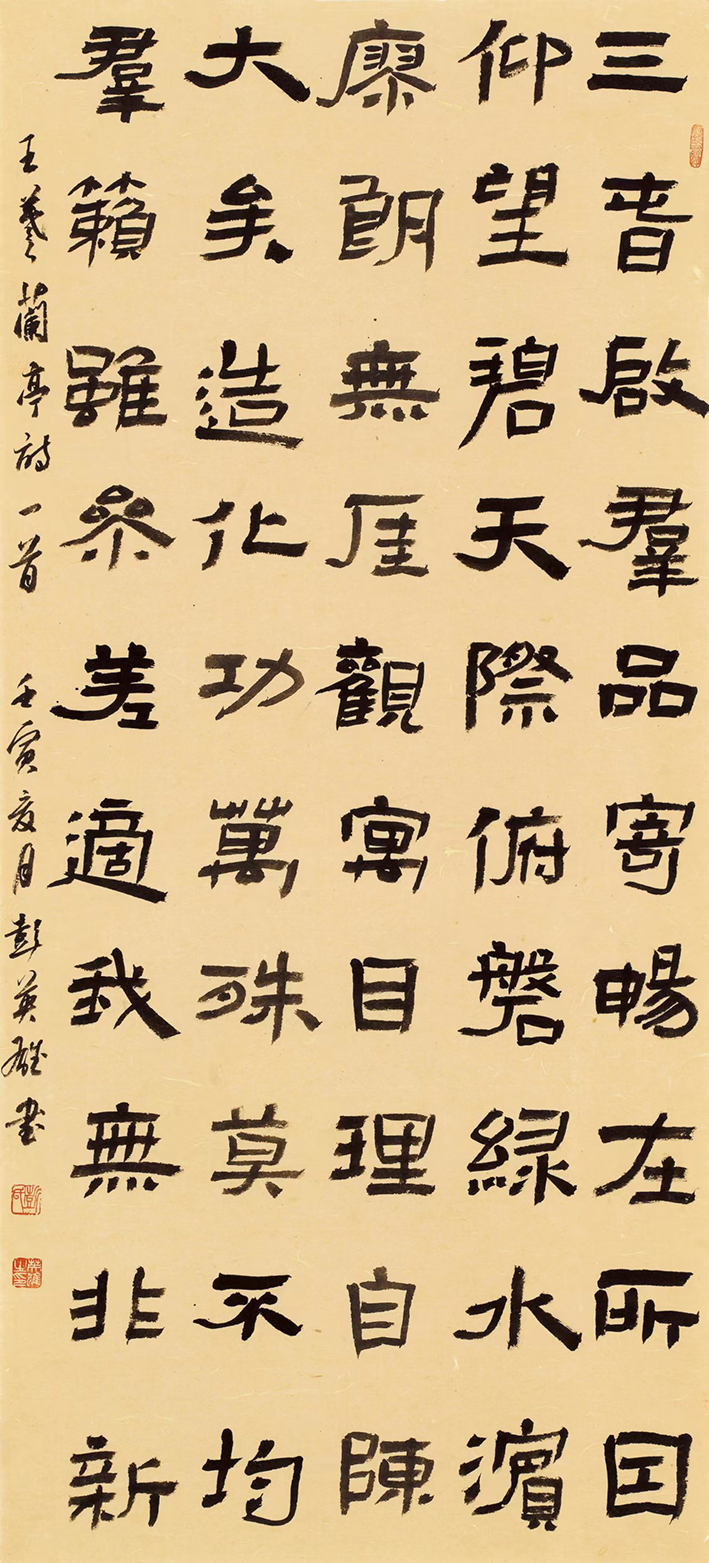 三旾啟羣品寄暢在所因
仰望碧天際俯磐綠水濱
廖朗無厓觀寓目理自陳
大矣造化功萬殊莫不均
羣籟雖參差適我無非新
王羲之蘭亭詩一首 壬寅夏月彭英雄書